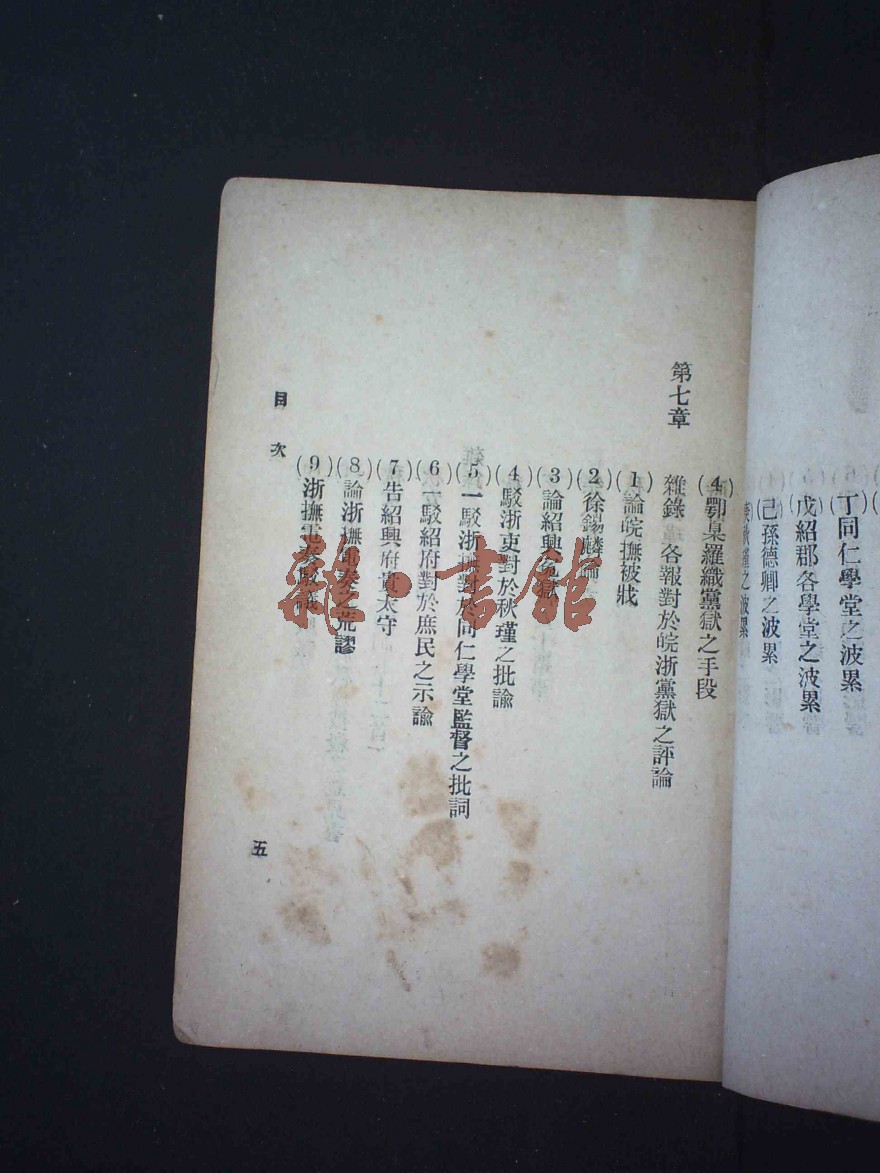 丁同仁學堂之波累
戊紹郡各學堂之波累
己孫德卿之波累
之波累
(4)鄂臬羅織黨獄之手段
第七章
雜錄 各報對於皖浙黨獄之評論
(1)論皖撫被戕
(2)徐錫麟論
(3)論紹興冤獄
(4)駁浙吏對於秋瑾之批諭
(5)駁浙撫對於同仁學堂監督之批詞
(6)駁紹府對於庶民之示諭
(7)告紹興府貴太守
(8)論浙撫電奏之荒謬
(9)浙撫電奏駁議
目次
五
雜·書館